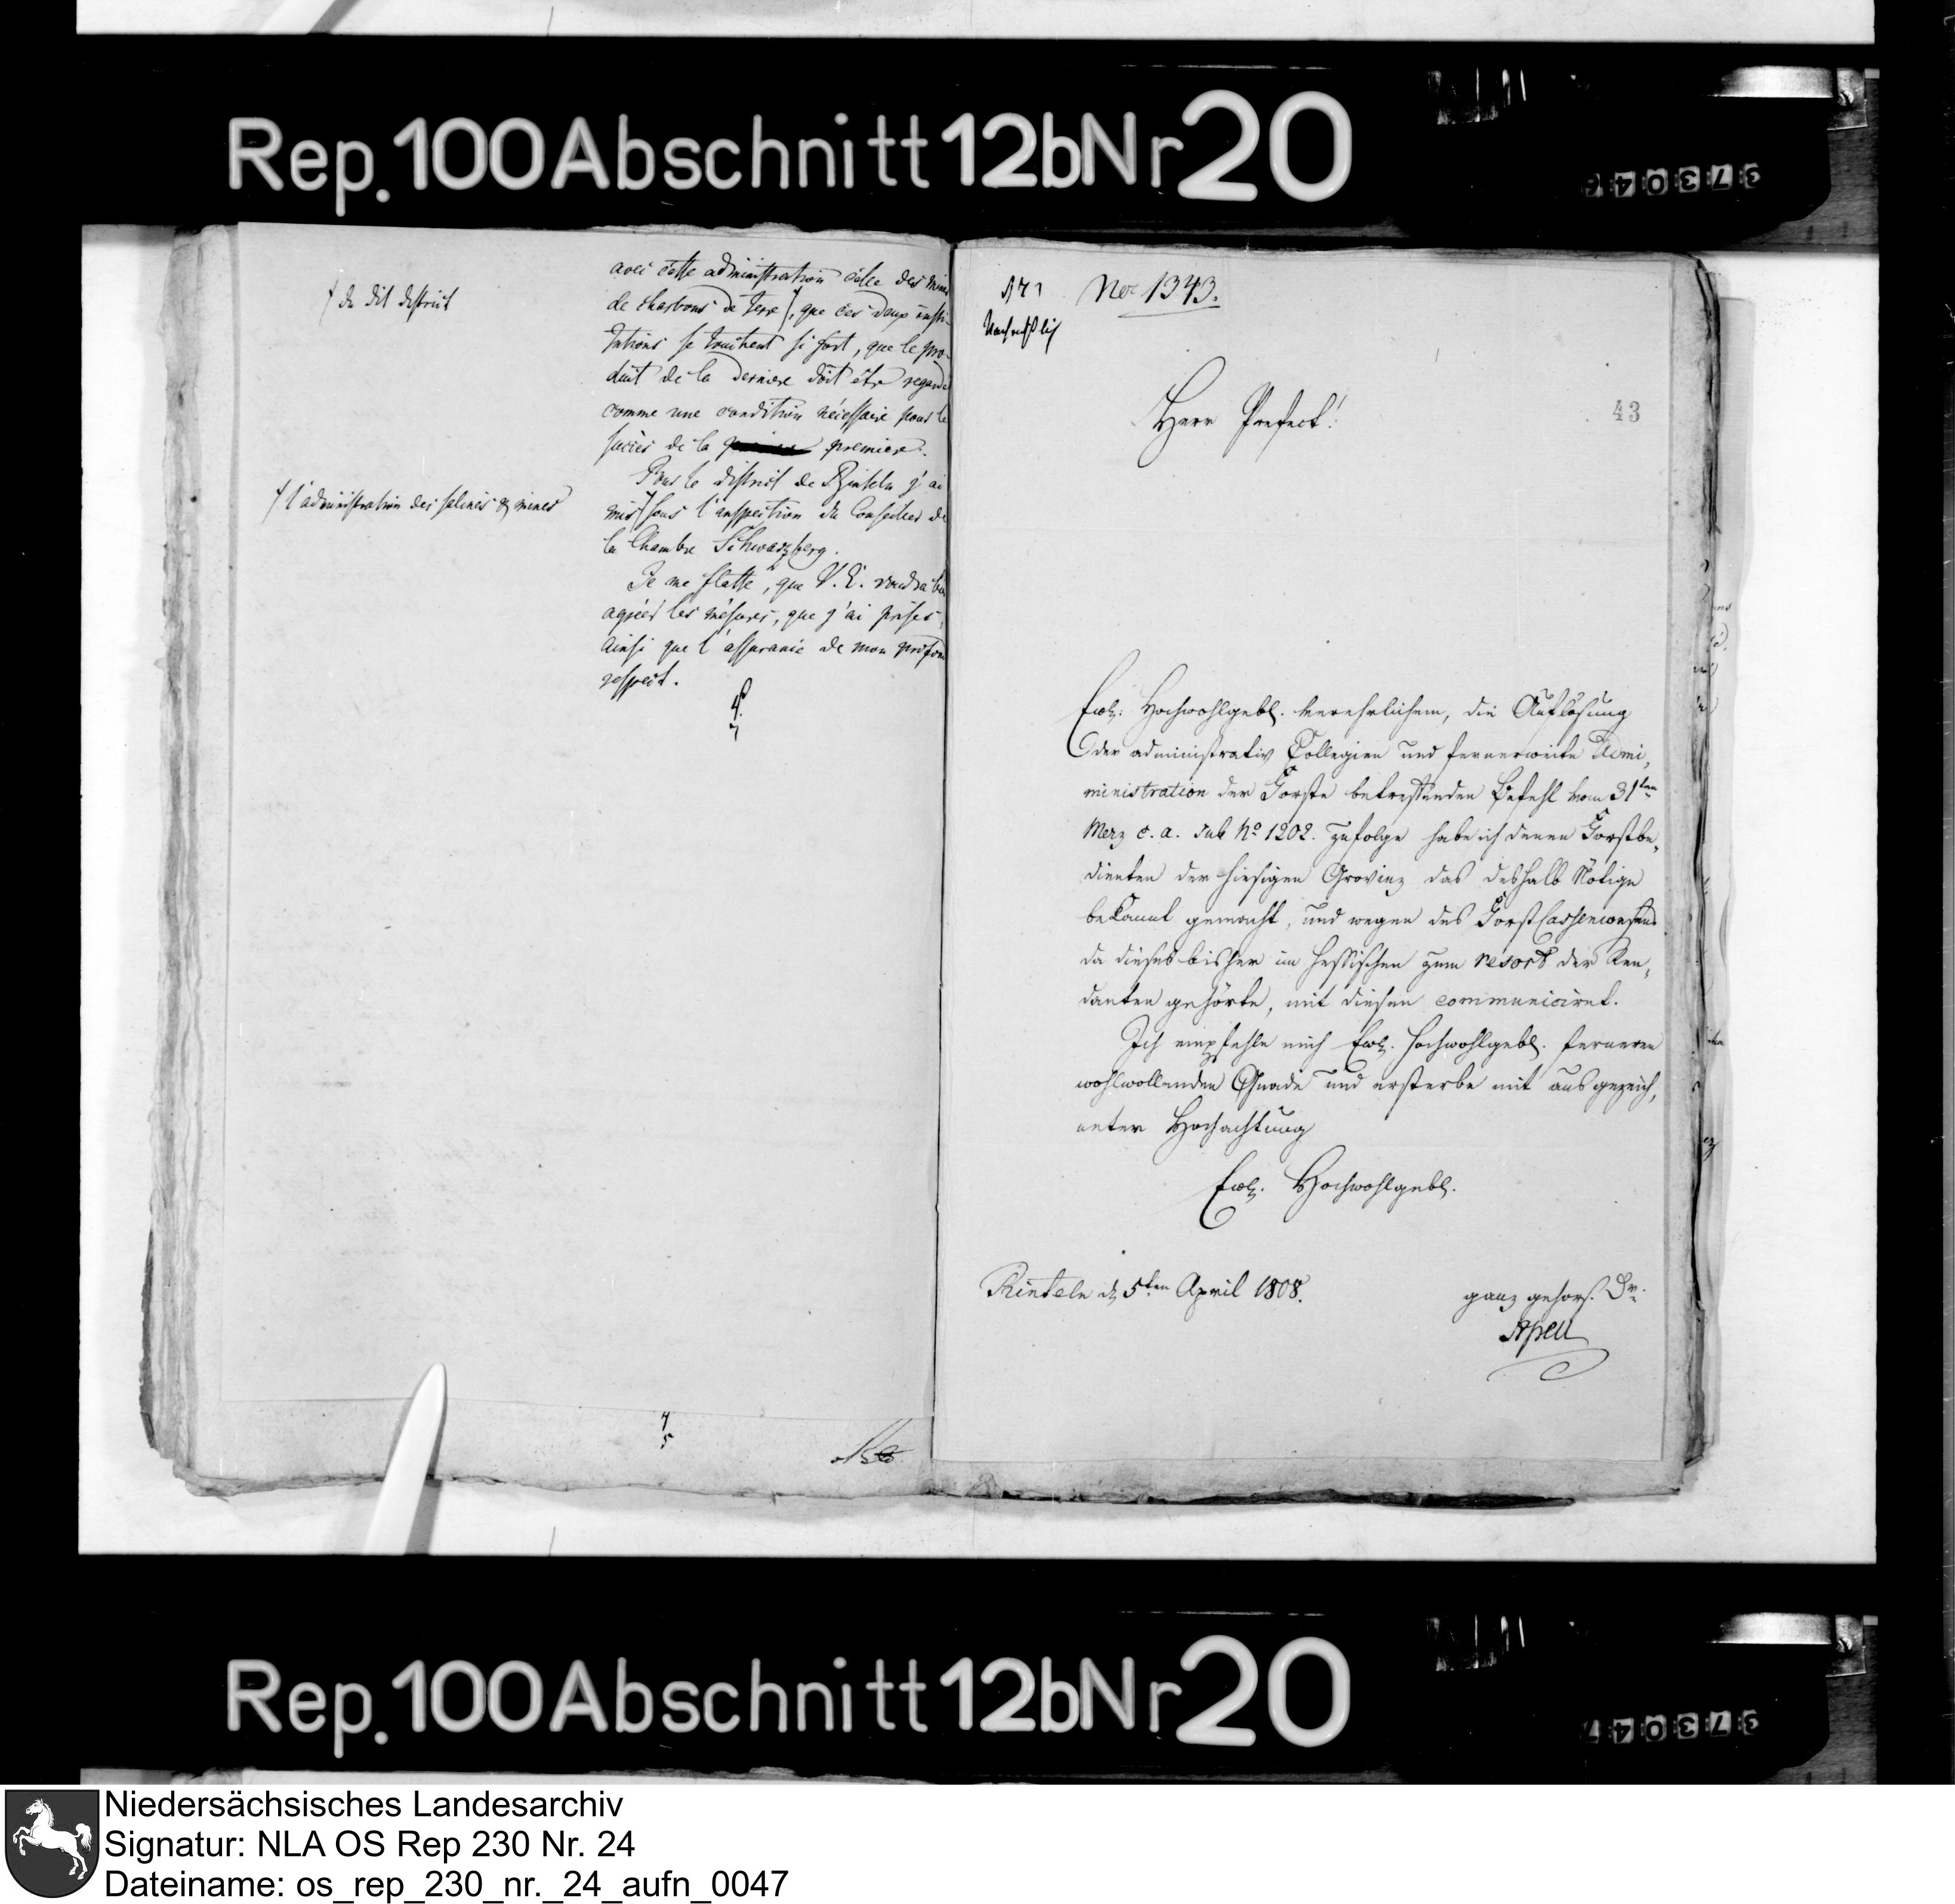 Rep. 100 Abschnitt 12b Nr 20
373046
ƒ du dit district
avec cette administration celle des mines
de charbons de terre ƒ, que ces deux insti-
tutions se touchent si fort, que le pro-
duit de la derniere doit être regardé
comme une condition nécessaire pour le
succès de la premiere.
Pour le district de Rinteln j'ai
ƒ l'administration des salines & mines
mis ƒ sous l'inspection du Conseiller de
la Chambre Schwarzberg.
Je me flatte, que V. E. voudra bien
agréer les mésures, que j'ai prises,
ainsi que l'assurance de mon profond
respect.
4
5
No 1343.
Herr Prefect!
43
Ew. Hochwohlgebl. verehrlichem, die Auflösung
der administrativ Collegien und fernerweite Admi-
ministration der Forste betreffenden Befehl vom 31ten
Merz c. a. sub No 1202. zufolge habe ich denen Forstbe-
dienten der hiesigen Provinz das deshalb Nötige
bekannt gemacht, und wegen des Forst Cassenwesens
da dieses bisher im Hessischen zum resort der Ren-
danten gehörte, mit diesen communiciret.
Ich empfehle mich Ew. Hochwohlgebl. ferneren
wohlwollenden Gnade und ersterbe mit ausgezeich-
neter Hochachtung
Ew. Hochwohlgebl.
Rinteln d 5ten April 1808.
ganz gehors. Dr.
Apell
Rep. 100 Abschnitt 12b Nr 20
373047
Niedersächsisches Landesarchiv
Signatur: NLA OS Rep 230 Nr. 24
Dateiname: os_rep_230_nr._24_aufn_0047